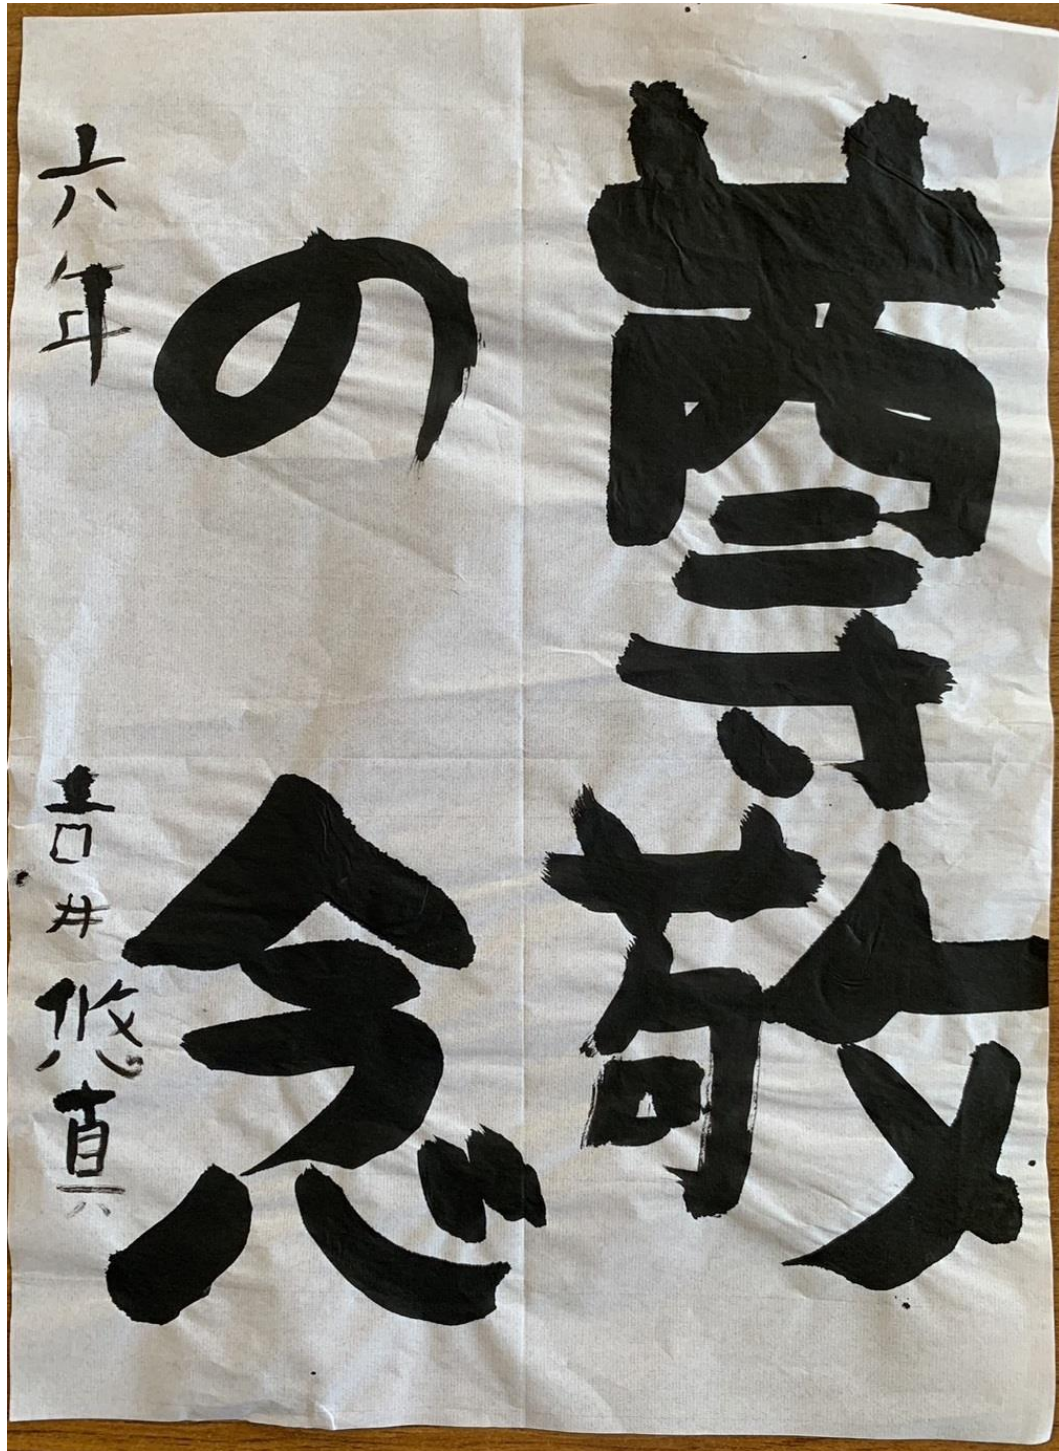 尊敬
の念
六年 吉井悠真